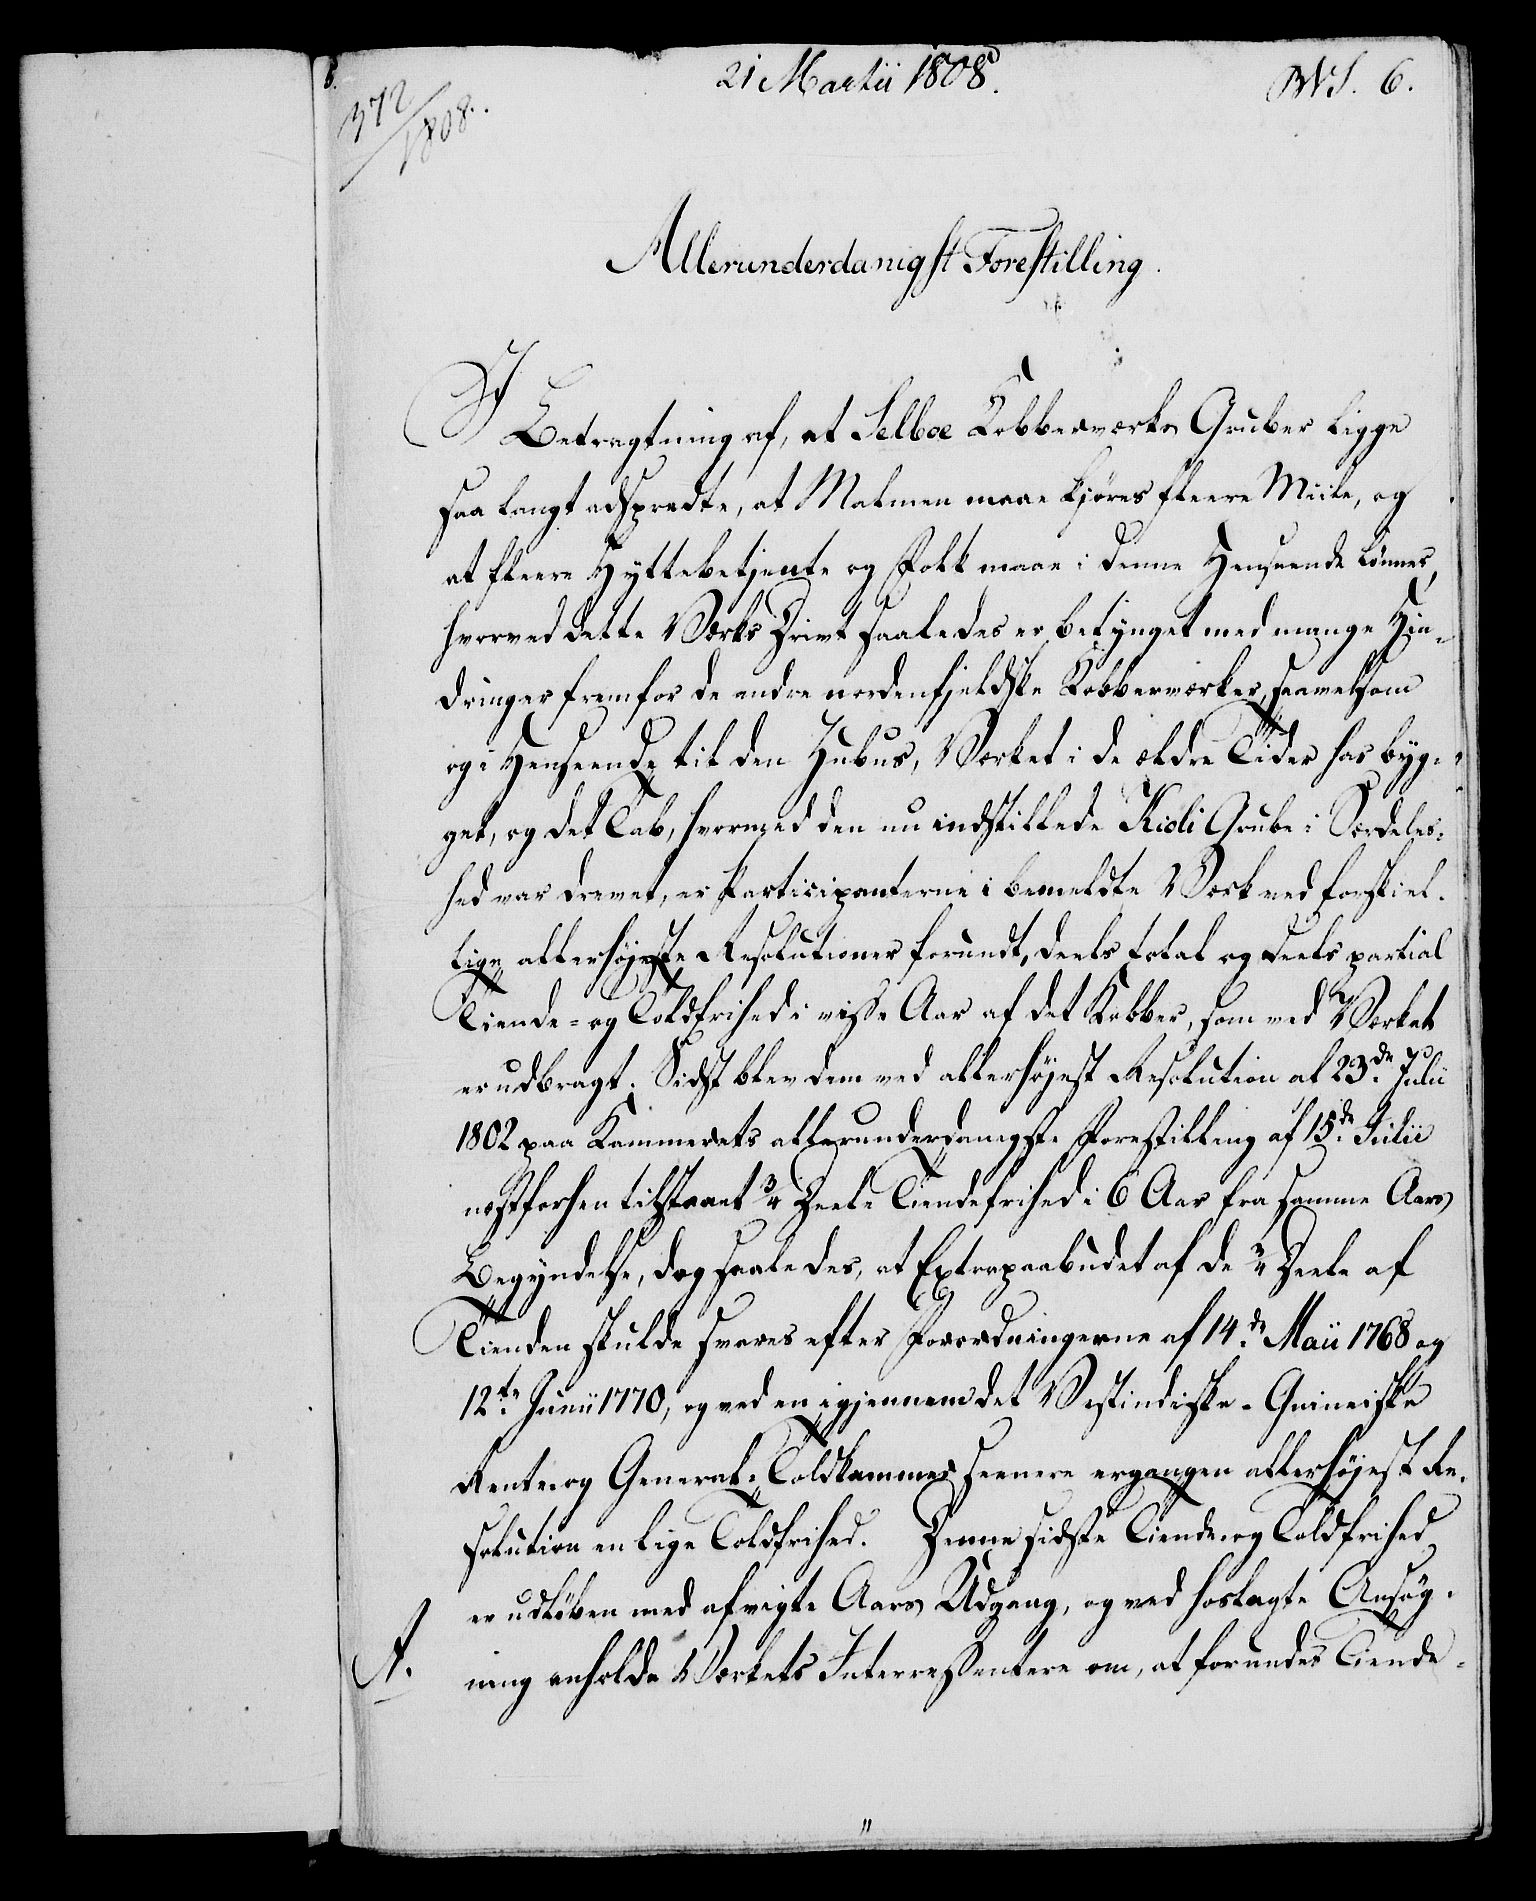 21 Martii 1808.
N. 6.
372/1808.
Allerunderdanigst Forestilling.
I Betragtning af, at Selboe Kobberværks Gruber ligge
saa langt adspredte, at Malmen maae kjøres fleere Miile, og
at fleere Hyttebetjente og Folk maae i denne Henseende lønnes,
hvorved dette Værks Drivt saaledes er betynget med mange Hin-
dringer fremfor de andre nordenfjeldske Kobberværker, saavelsom
og i Henseende til den Zubus, Værket i de ældre Tider har byg-
get, og det Tab, hvormed den nu indstillede Kioli Grube i Særdeles-
hed var drevet, er Participanterne i bemeldte Værk ved forskiel-
lige allerhøjeste Resolutioner forundt, deels total og deels partial
Tiende- og Toldfrihed i visse Aar af det Kobber, som ved Værket
er udbragt. Sidst blev dem ved allerhøjest Resolution af 23de Julii
1802 paa Kammerets allerunderdanigste Forestilling af 15de Julii
næstforhen tilstaaet 3/4 Deele Tiendefrihed i 6 Aar fra samme Aars
Begyndelse, dog saaledes, at Extrapaabudet af de 3/4 Deele af
Tienden skulde svares efter Forordningerne af 14de Maii 1768 og
12te Junii 1770, og ved en igjennem det Vestindiske-Guineiske
Rente- og General-Toldkammer seenere ergangen allerhøjest Re-
solution en lige Toldfrihed. Denne sidste Tiende- og Toldfrihed
er udløben med afvigte Aars Udgang, og ved hoslagte Ansøg-
A.
ning anholde Værkets Interressentere om, at forundes Tiende-